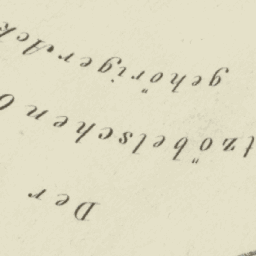 Der
tzöbelschen
gehöriger Ack